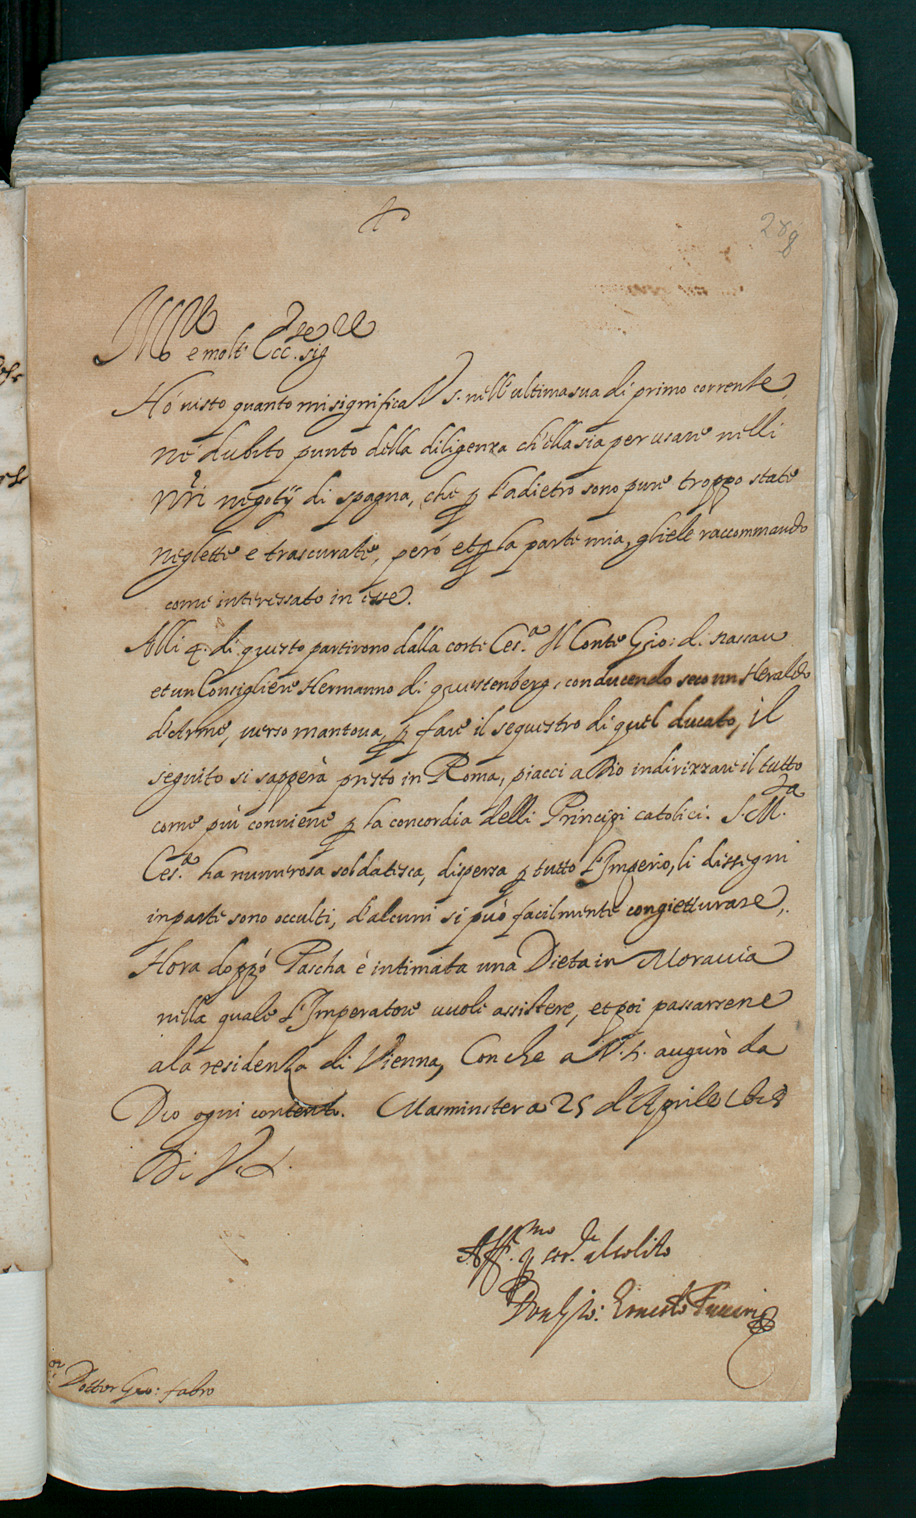 288
e molt' Ecc.te Sig.re
Hò uisto quanto mi significa V.S. nell'ultima sua di primo corrente,
ne dubito punto della diligenza ch'ella sia per usare nelli
nr̃i negotÿ di spagna, che ꝑ l'adietro sono pure troppo state
neglette e trascurate, però et ꝑ la parte mia, gliele raccommando
come interessato in esse.
Alli 4. di questo partirono dalla corte Ces.a Il Conte Gio: di Nassau
et un Consigliere Hermanno di questenberg, conducendo seco un Heraldo
d'Arme, uerso mantoua, ꝑ fare il sequestro di quel ducato, il
seguito si sapperà presto in Roma, piacci a Dio indirizzare il tutto
come più conuiene ꝑ la concordia delli Principi catolici. S. M.tà
Ces.a ha numerosa soldatesca, dispersa ꝑ tutto l'Imperio, li dissegni
in parte sono occulti, d'alcuni si può facilmente congietturare,
Hora doppò Pascha è intimata una Dieta in Morauia
nella quale l'Imperatore uuole assistere, et poi passarsene
alla residenza di Vienna, Con che a V.S. augurò da
Dio ogni contento. Masminster a 25 d'Aprile 1628
Di V.S.
Aff.mo ꝑ ser.la al solito
Don Gio: Ernesto
Dottor Gio: fabro